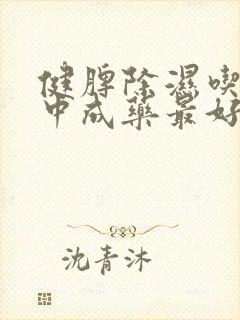 健脾除濕喫
中成藥最好
沈青沐